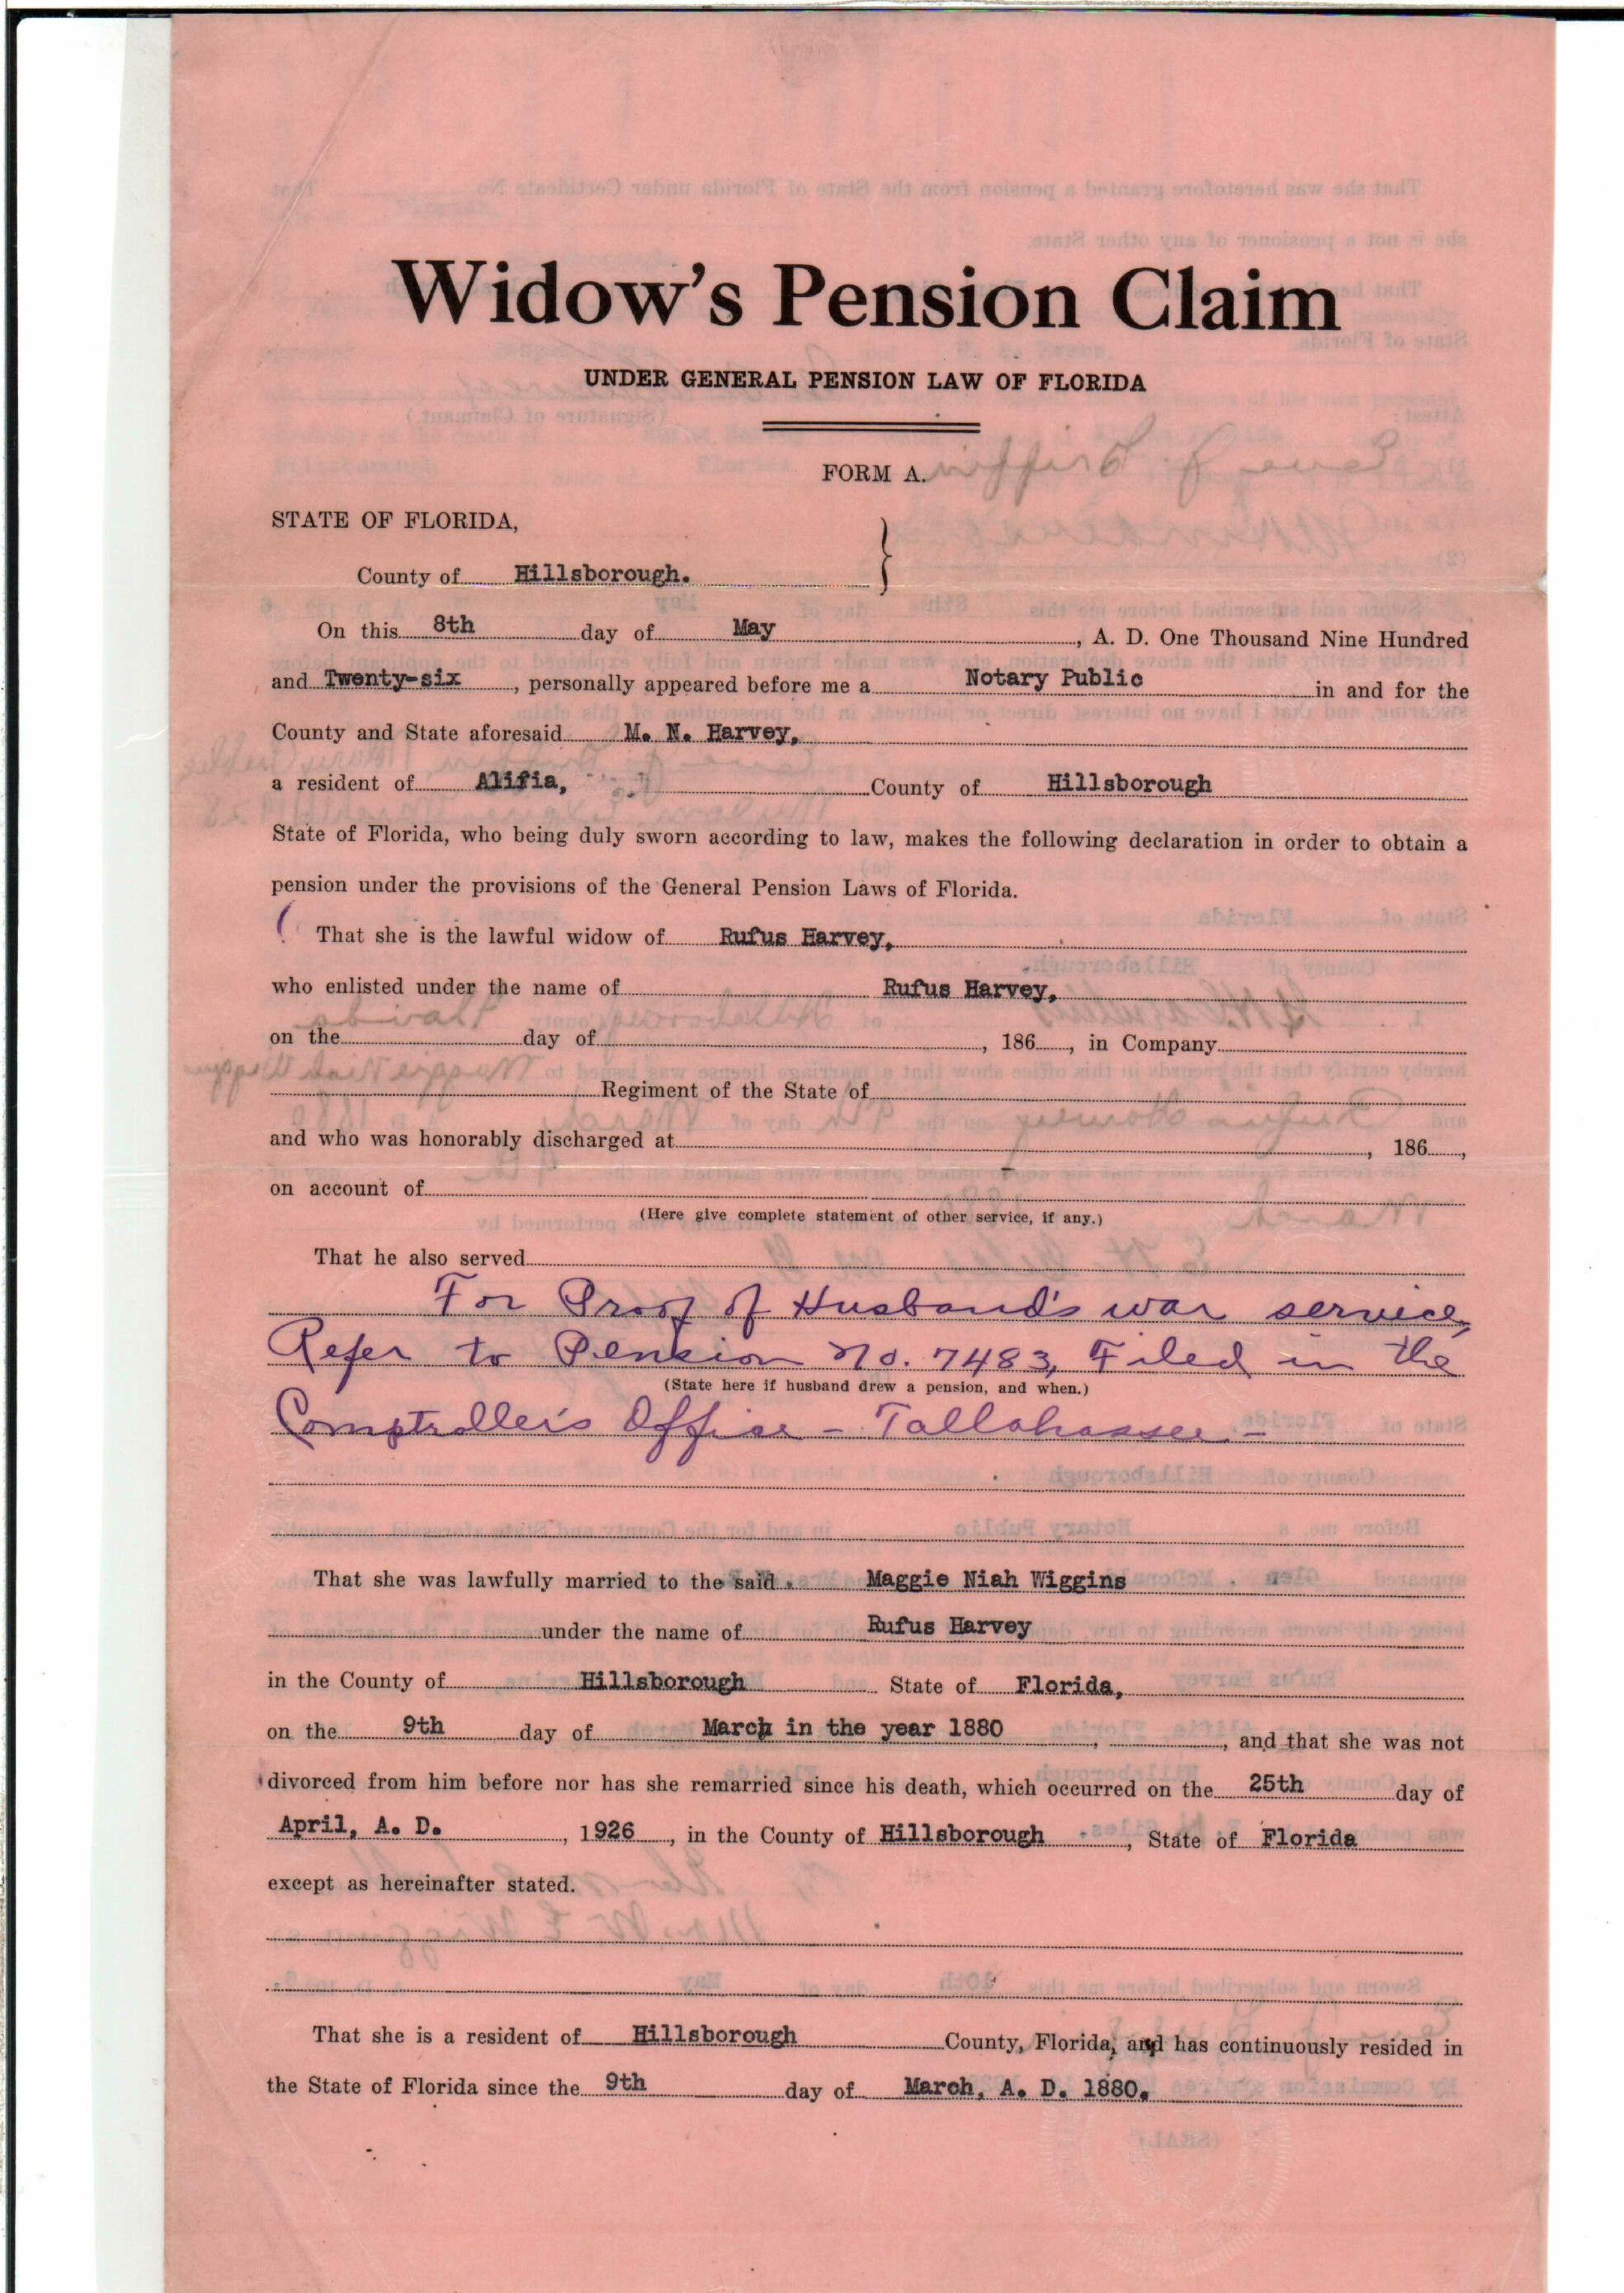 Widow's Pension Claim
UNDER GENERAL PENSION LAW OF FLORIDA
FORM A.
STATE OF FLORIDA,
County of Hillsborough. }
On this 8th day of May, A. D. One Thousand Nine Hundred
and Twenty-six, personally appeared before me a Notary Public in and for the
County and State aforesaid M. N. Harvey,
a resident of Alifia, County of Hillsborough
State of Florida, who being duly sworn according to law, makes the following declaration in order to obtain a
pension under the provisions of the General Pension Laws of Florida.
( That she is the lawful widow of Rufus Harvey,
who enlisted under the name of Rufus Harvey,
on the day of , 186 , in Company
Regiment of the State of
and who was honorably discharged at , 186 ,
on account of
(Here give complete statement of other service, if any.)
That he also served
For Proof of Husband's war service,
Refer to Pension No. 7483, Filed in the
(State here if husband drew a pension, and when.)
Comptroller's Office - Tallahassee -
That she was lawfully married to the said Maggie Niah Wiggins
under the name of Rufus Harvey
in the County of Hillsborough State of Florida,
on the 9th day of March in the year 1880 , , and that she was not
divorced from him before nor has she remarried since his death, which occurred on the 25th day of
April, A. D. , 1926 , in the County of Hillsborough , State of Florida
except as hereinafter stated.
That she is a resident of Hillsborough County, Florida, and has continuously resided in
the State of Florida since the 9th day of March, A. D. 1880.